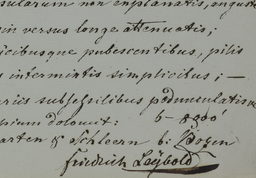 sularum non explanatis, angusto
in versus longe attenuatis;
icibusque pubescentibus, pilis
intermixtis simplicibus; —
ariis subsessilibus pedunculatis
pium dolomit: 6–8000'
arten & Schleern b: Bozen
Friedrich Leybold